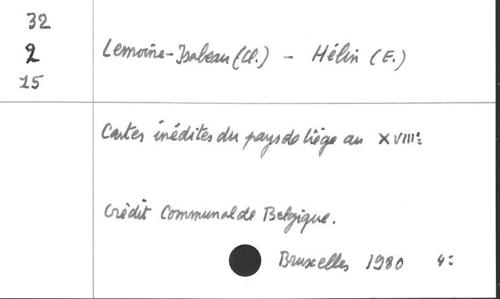 32
2
15
Lemoine-Isabeau (Cl.) - Hélin (E.)
Cartes inédites du pays de liège au XVIIIe
Crédit Communal de Belgique.
Bruxelles 1980 4°